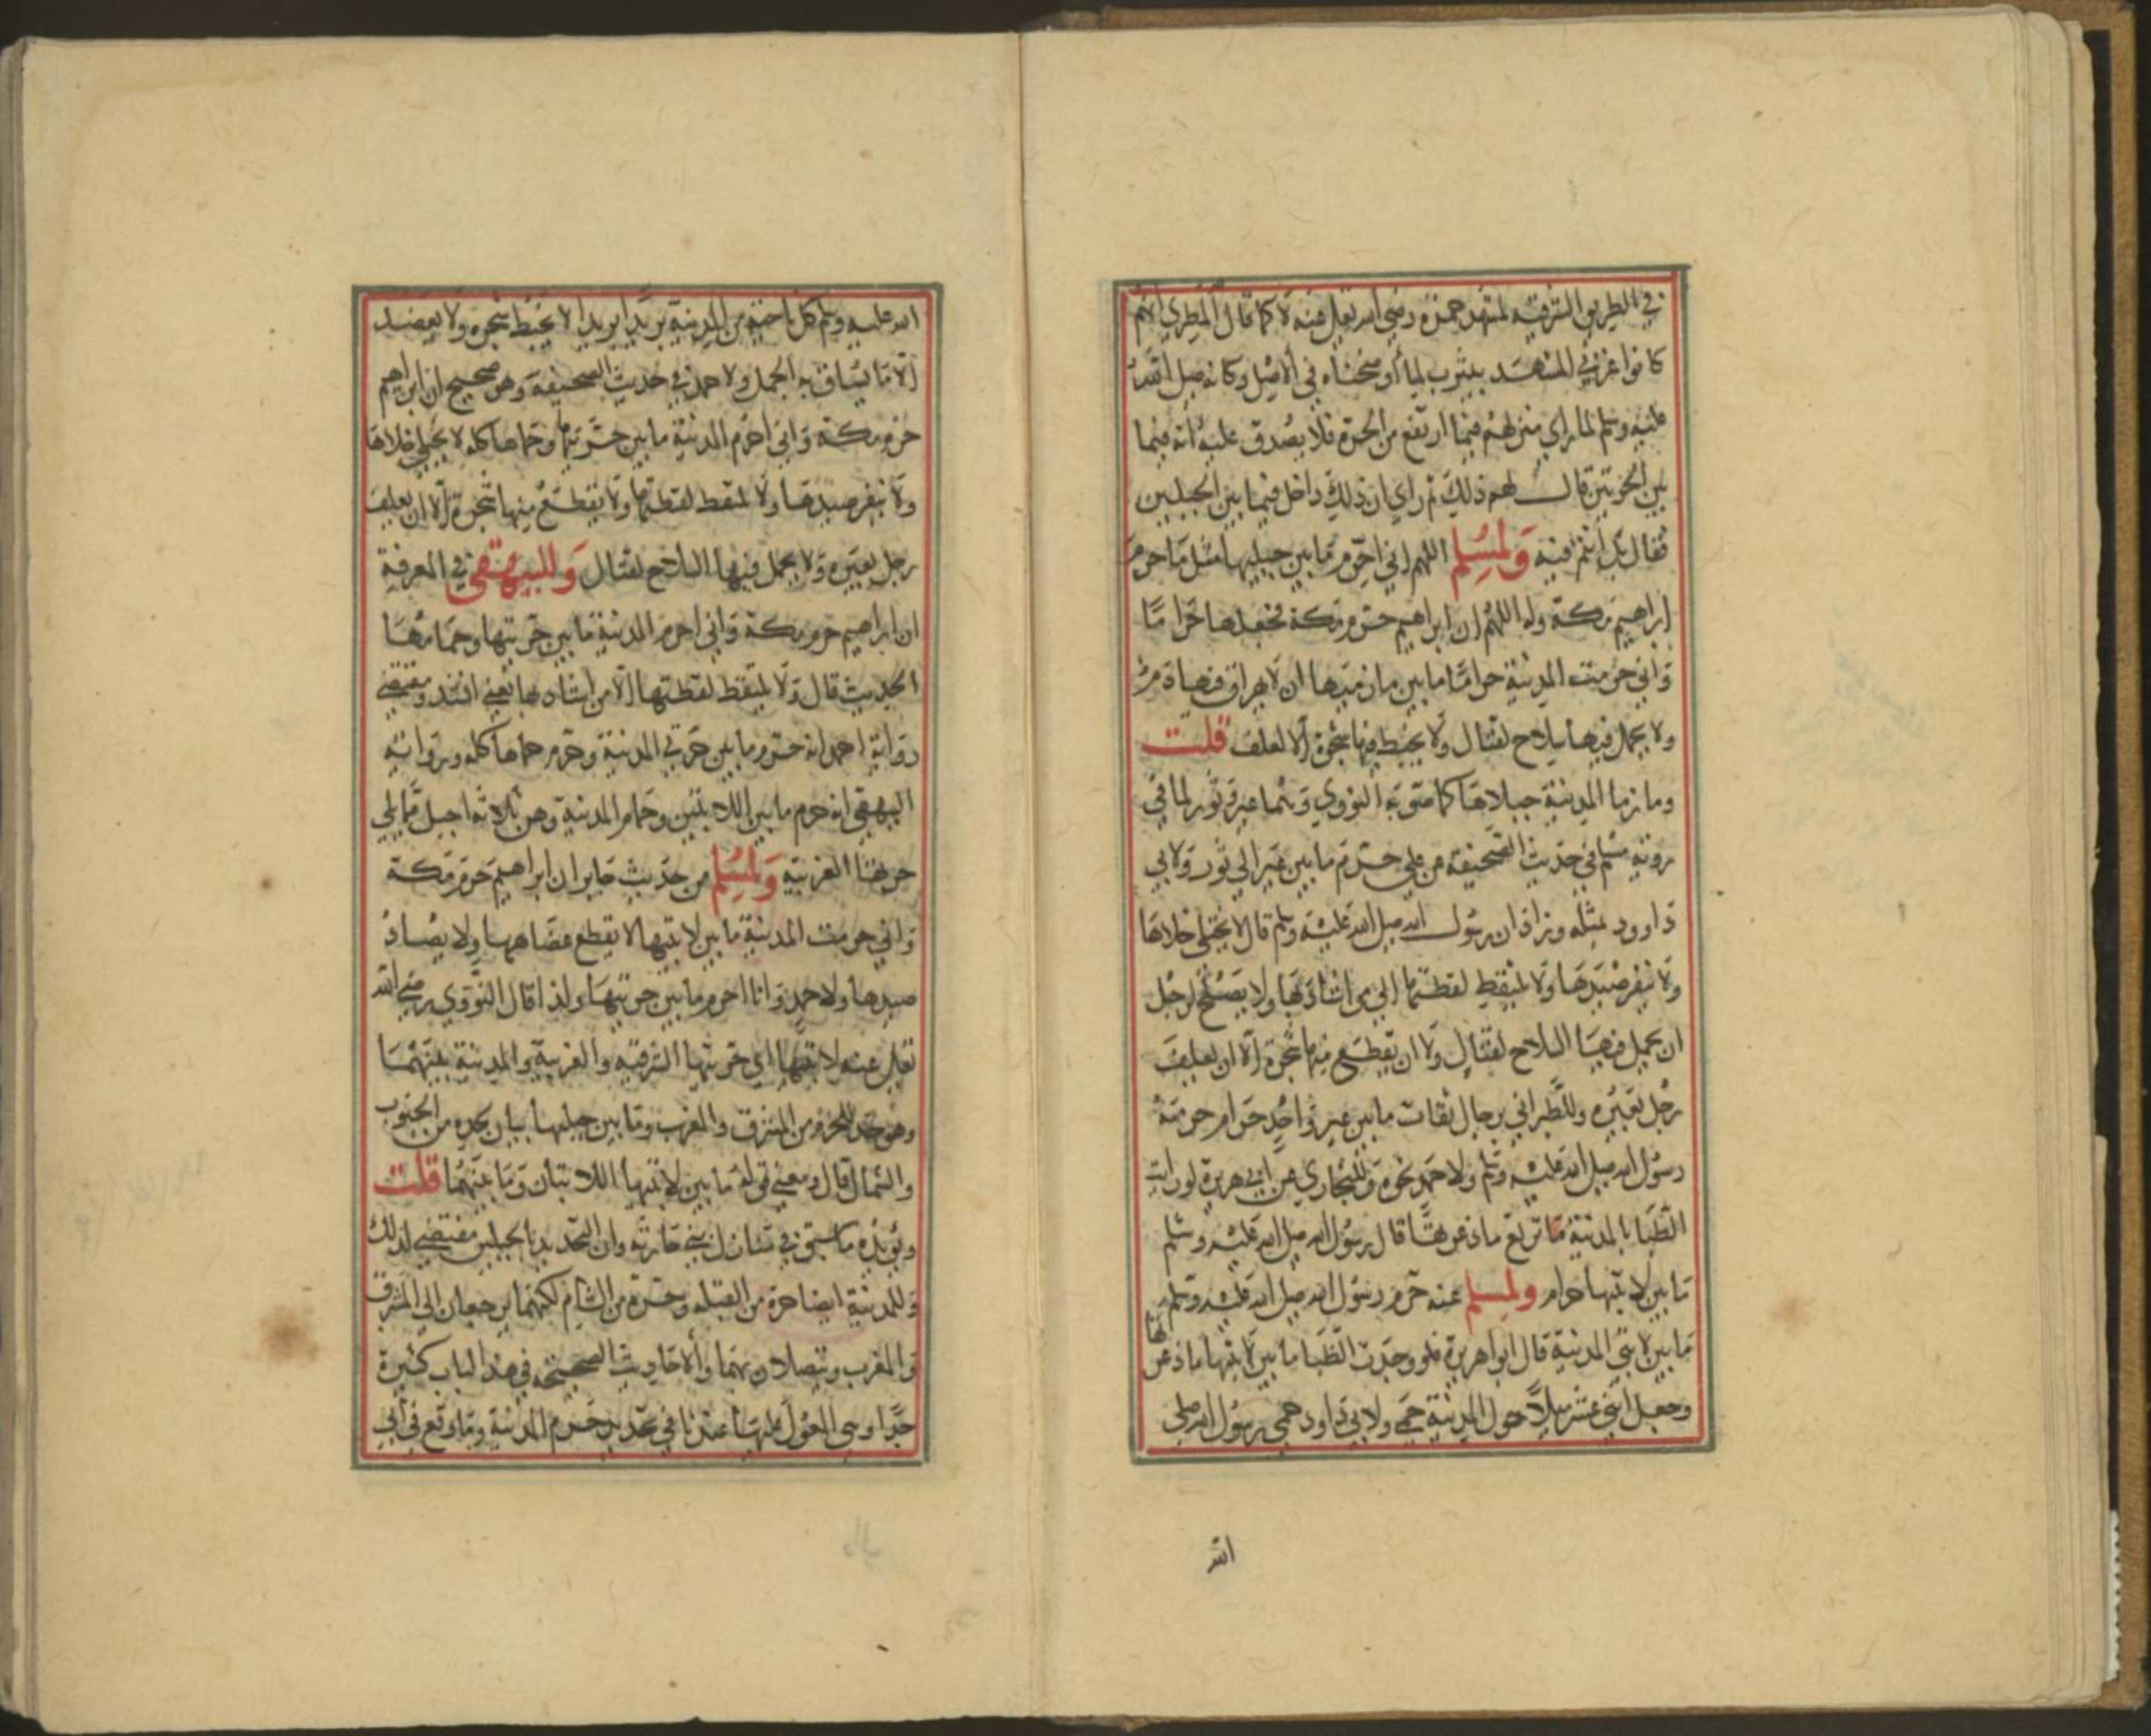 في الطريق الشرقيه لمشهد حمزة رضي الله تعلى عنه لا كما قال المطري انهم
كانوا غربي المشهد بيثرب لما أوضحناه في الاصل وكانه صلى الله
عليه وسلم لما راى منزلهم فيما ارتفع من الحرة فلا يصدق عليه انه فيما
بين الحرتين قال لهم ذلك ثم راي ان ذلك داخل فيما بين الجبلين
فقال بل أنتم فيه وَلمُسْلِم اللهم اني احرم ما بين جبليها مثل ما حرم
إبراهيم مكة وله اللهم ان ابراهيم حرم مكة فجعلها حراما
وَاني حرمت المدينة حرامًا ما بين مازميها ان لا يهراق فيها دم
ولا يحمل فيها سلاح لقتال ولا يخبط فيها شجرة إلا لعلف قلت
ومازما المدينة جبلاها كما صوبه النووي وهما عير وثور لما في
روية مسلم في حديث الصحيفة عن علي حرم ما بين عير الي ثور ولابي
داوود مثله وزاد ان رسول الله صلى الله عليه وسلم قال لا يختلى خلاها
ولا ينفر صيدها ولا يلتقط لقطتها إلي من اشاد بها ولا يصلح لرجل
ان يحمل فيها السلاح لقتال ولا ان يقطع منها شجرة إلا ان يعلف
رجل بعيره وللطبراني برجال ثقات ما بين عير واحد حرام حرمه
رسول الله صلى الله عليه وسلم ولاحمد نحوه وللبخاري عن ابي هريرة لو رايت
الظبا بالمدينة ترتع ما ذعرتها قال رسول الله صلى الله عليه وسلم
ما بين لابتيها حرام ولمسلم عنه حرم رسول الله صلى الله عليه وسلم
ما بين لابتي المدينة قال ابوا هريرة فلو وجدت الظبا ما بين لابتيها ما ذعرتها
وجعل اثني عشر ميلاً حول المدينة حمى ولابي داود حمى رسول الله صلى
الله
الله عليه وسلم كل ناحية من المدينة بريدا بريدا لا يخبط شجره ولا يعضد
إلا ما يساق به الجمل ولاحمد في حديث الصحيفة وهو صحيح ان ابراهيم
حرم مكة وَاني احرم المدينة ما بين حرتيها وحماها كله لا يختلى خلاها
ولا ينفر صيدها ولا تلتقط لقطتها ولا يقطع منها شجرة إلا ان يعلف
رجل بعيره ولا يحمل فيها السلاح لقتال وَللبيهقي في المعرفة
ان ابراهيم حرم مكة وَاني احرم المدينة ما بين حرتيها وحمامها
الحديث قال ولا يلتقط لقطتها إلا من اشاد بها يعني انشد ومقتضى
رواية احمد انه حرم ما بين حرتي المدينة وحرم حماها كله وبرواية
البيهقي انه حرم ما بين اللابتين وحمام المدينة وهن ثلاثة اجبل مما يلي
حرتها الغربية وَلمُسْلِم من حديث جابر ان ابراهيم حرم مكة
وَاني حرمت المدينة ما بين لابتيها لا يقطع عضاهها ولا يصاد
صيدها ولاحمد وانا احرم ما بين حرتيها ولذا قال النووي رضي الله
تعلى عنه لابتيها اي حرتيها الشرقيه والغربية والمدينة بينهما
وهو حد للحرم من المشرق والمغرب وما بين جبليها بيان لحده من الجنوب
والشمال قال ومعنى قوله ما بين لابتيها اللابتان وما بينهما قلت
ويؤيده ما سبق في منازل بني حارثه وان التحديد بالجبلين مقتضى لذلك
وللمدينة ايضا حرة من القبله وحرة من الشام لكنهما يرجعان الى المشرق
والمغرب ويتصلان بهما والاحاديث الصحيحة في هذا الباب كثيرة
جدا وهي المعول عليها عندنا في تحديد حرم المدينة وما وقع في أبي